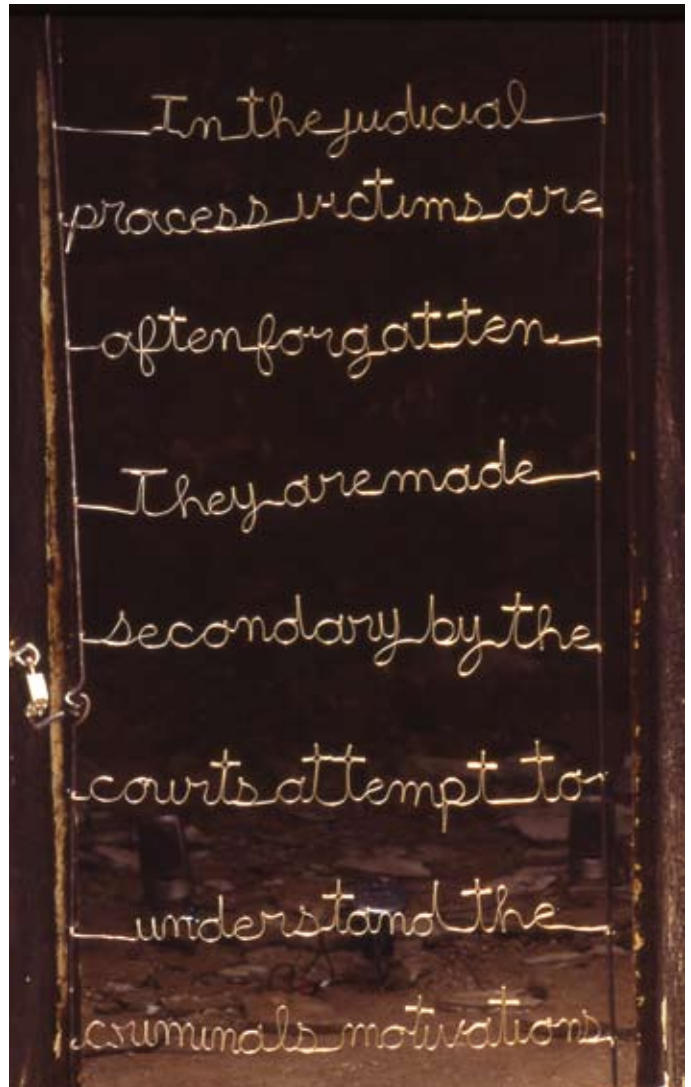 In the judicial
process victims are
often forgotten
They are made
secondary by the
courts attempt to
understand the
criminals motivations